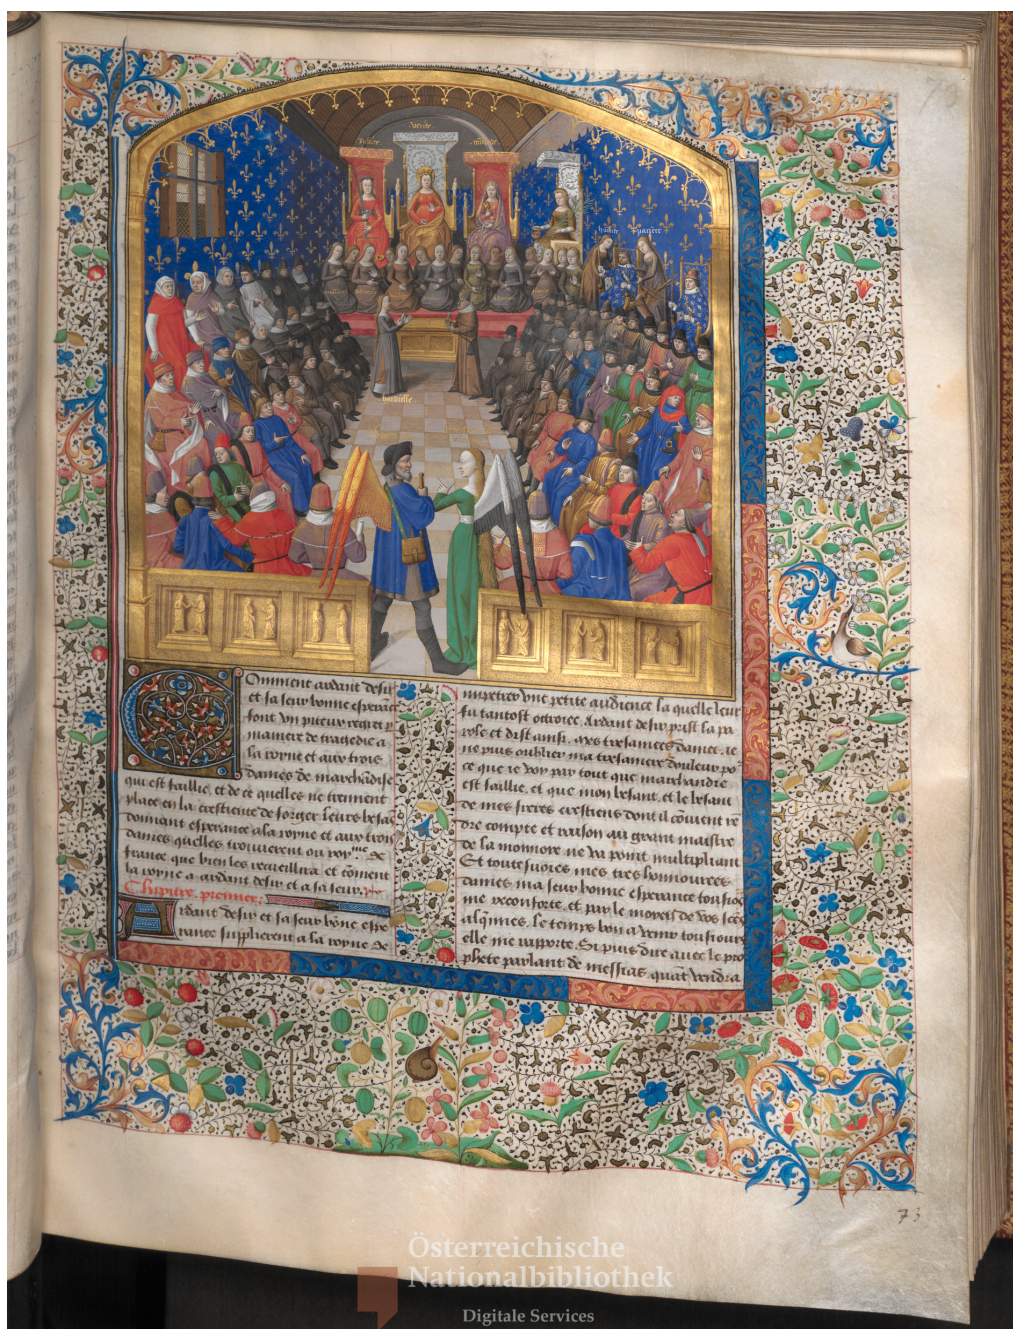 Justice
verite
misericorde
hardiesse
Comment ardant desir
et sa seur bonne esperance
font vn piteux regret p
maniere de tragedie a
la royne et aux trois
dames de marchãdise
qui est faillie, et de ce quelles ne tiennent
place en la crestiente de forger leurs besãs
donnant esperance a la royne et aux trois
dames quelles trouueront ou roy.me de
france que bien les recueillira et cõment
la royne a ardant desir et a sa seur
Chapitre premier.
Ardant desir et sa seur bõne espe
rance supplierent a la royne de
impetrer vne petite audience la quelle leur
fu tantost ottroiee. Ardant desir prist la pa
role et dist ainsi. Mes tresamees dames, ie
ne puis oublier ma tresamere douleur po
ce que ie voy par tout que marchandie
est faillie, et que mon besant, et le besant
de mes freres crestiens dont il cõuient rẽ
dre compte et raison au grant maistre
de la monnoie ne va point multipliant
Et toutesuoies mes tres honnourees
dames ma seur bonne esperance tousiou
me reconforte, et par le moyen de vos sces
alqimies. le temps bon a venir tousiours
elle me rapporte. Si puis dire auec le pro
phete parlant de messias, quãt vendra
73
Österreichische
Nationalbibliothek
Digitale Services